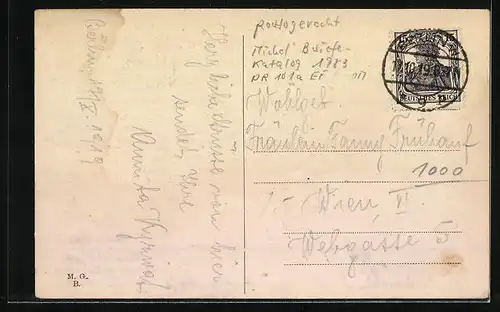 portogerecht
Michel Briefe-
Katalog 1983
PR 101a EF
Wohlgeb.
Fräulein Fanny Frühauf
1000
Wien VI.
Webgasse 5
DEUTSCHES REICH
Berlin,
X. 1919
Herzliche Grüsse von hier
sendet Ihre
M. G.
B.